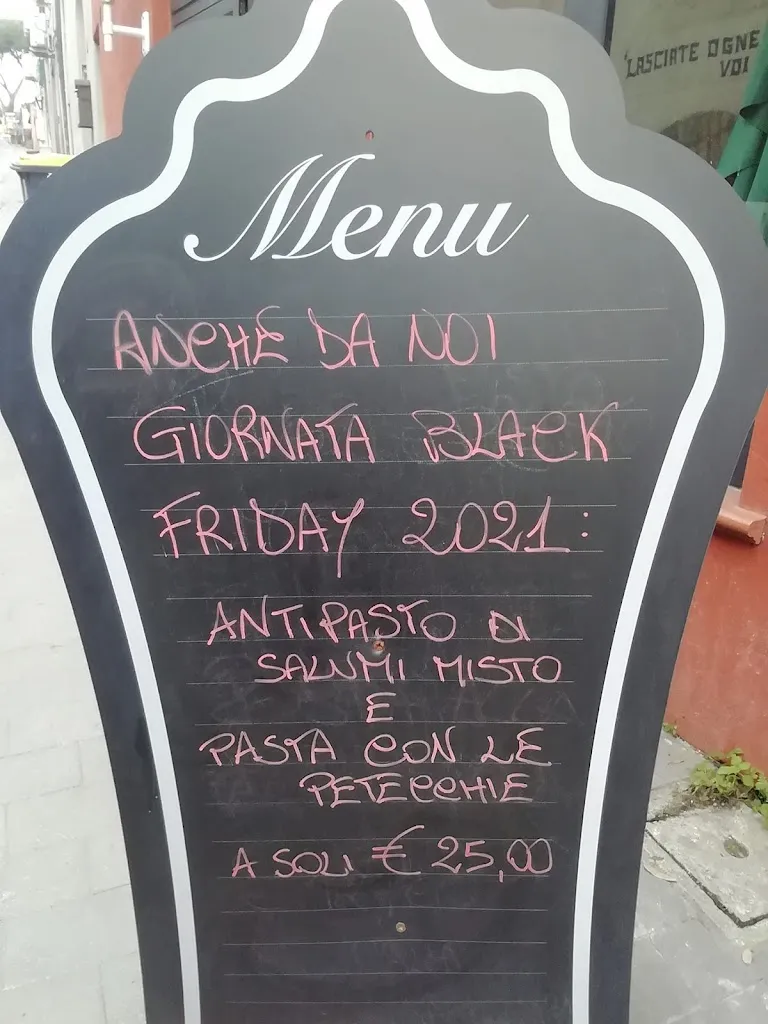 'LASCIATE OGNE
VOI
Menu
ANCHE DA NOI
GIORNATA BLACK
FRIDAY 2021:
ANTIPASTO DI
SALUMI MISTO
E
PASTA CON LE
PETECCHIE
A SOLI € 25,00